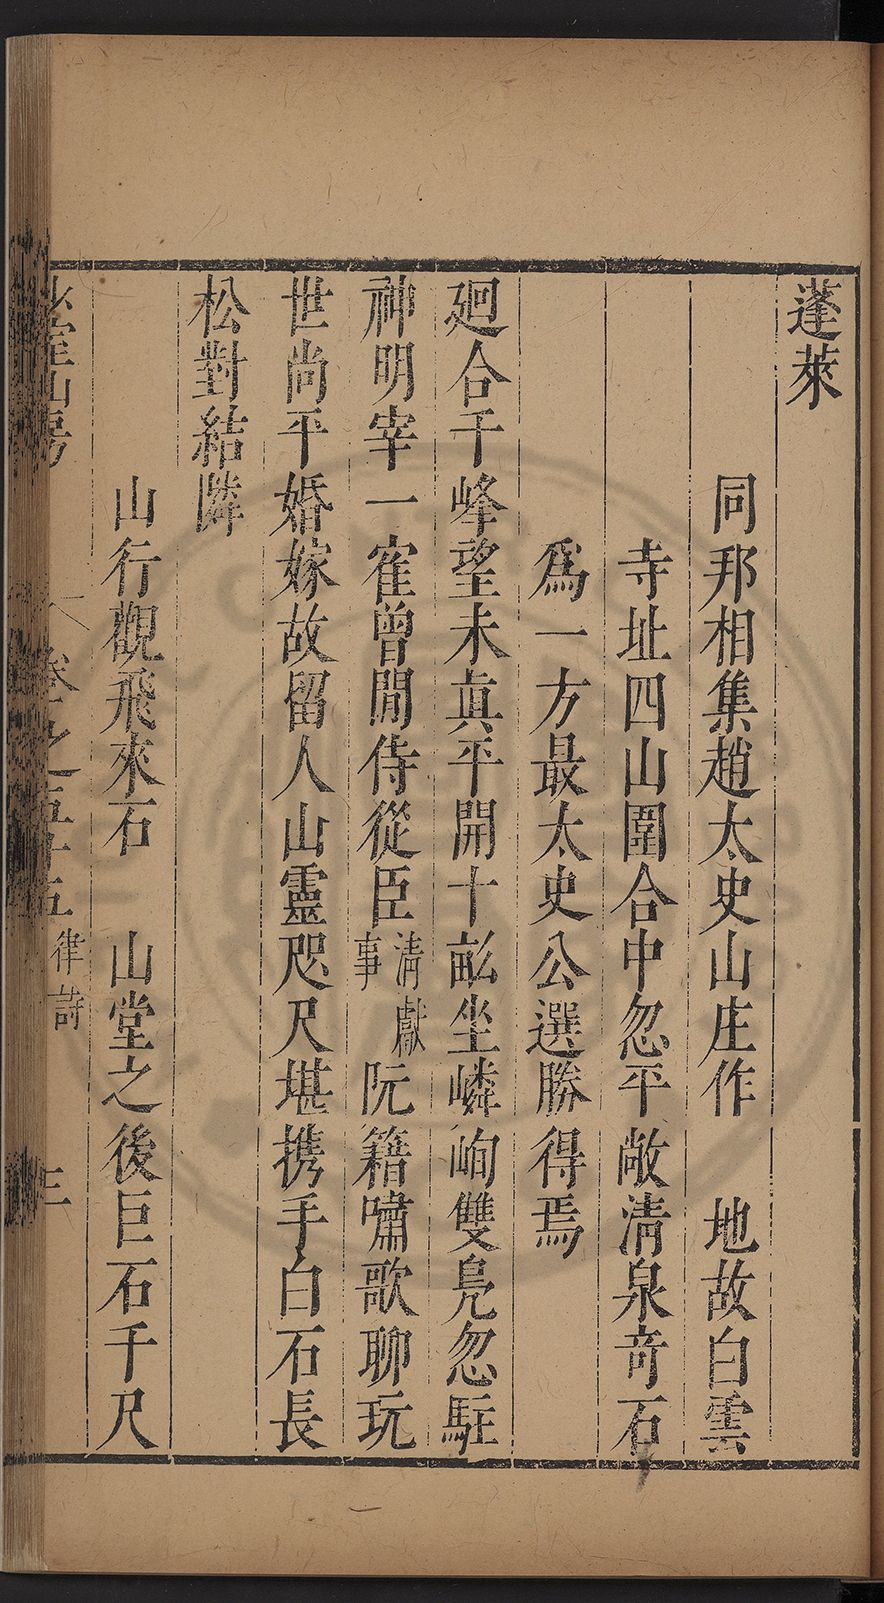 蓬萊
同邦相集趙太史山庄作　地故白雲
寺址四山圍合中忽平敞清泉奇石
爲一方最太史公選勝得焉
廻合千峰望未真平開十畝坐嶙峋雙鳧忽駐
神明宰一隺曾閒侍從臣清獻事阮籍嘯歌聊玩
世尚平婚嫁故留人山靈咫尺堪携手白石長
松對結隣
山行觀飛來石　山堂之後巨石千尺
山房 卷之五十五 律詩 三